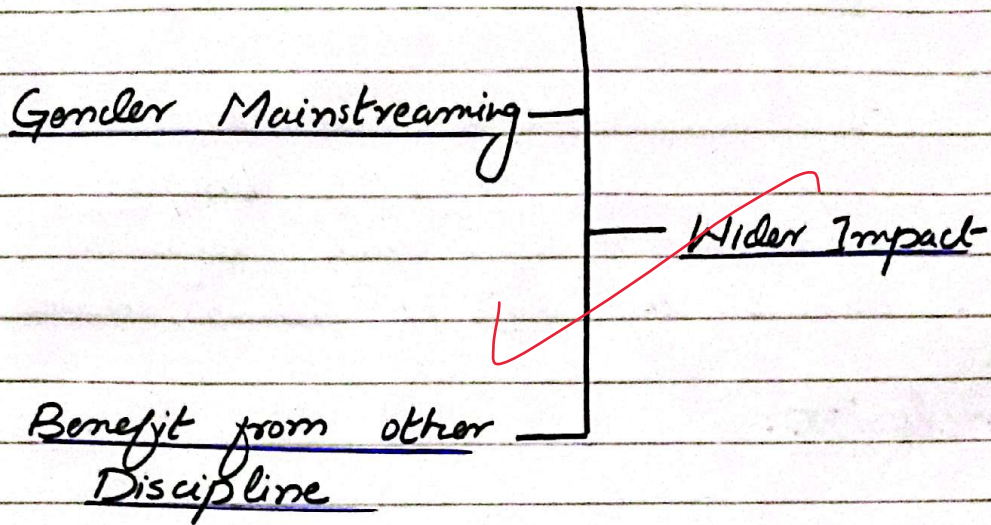 Gender Mainstreaming
Wider Impact
Benefit from other
Discipline